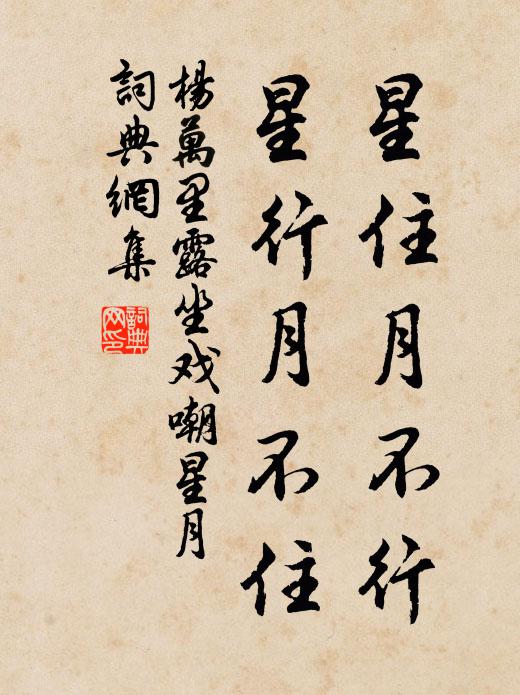 星住月不行
星行月不住
楊萬里露坐戏嘲星月
詞典網集
詞典网印